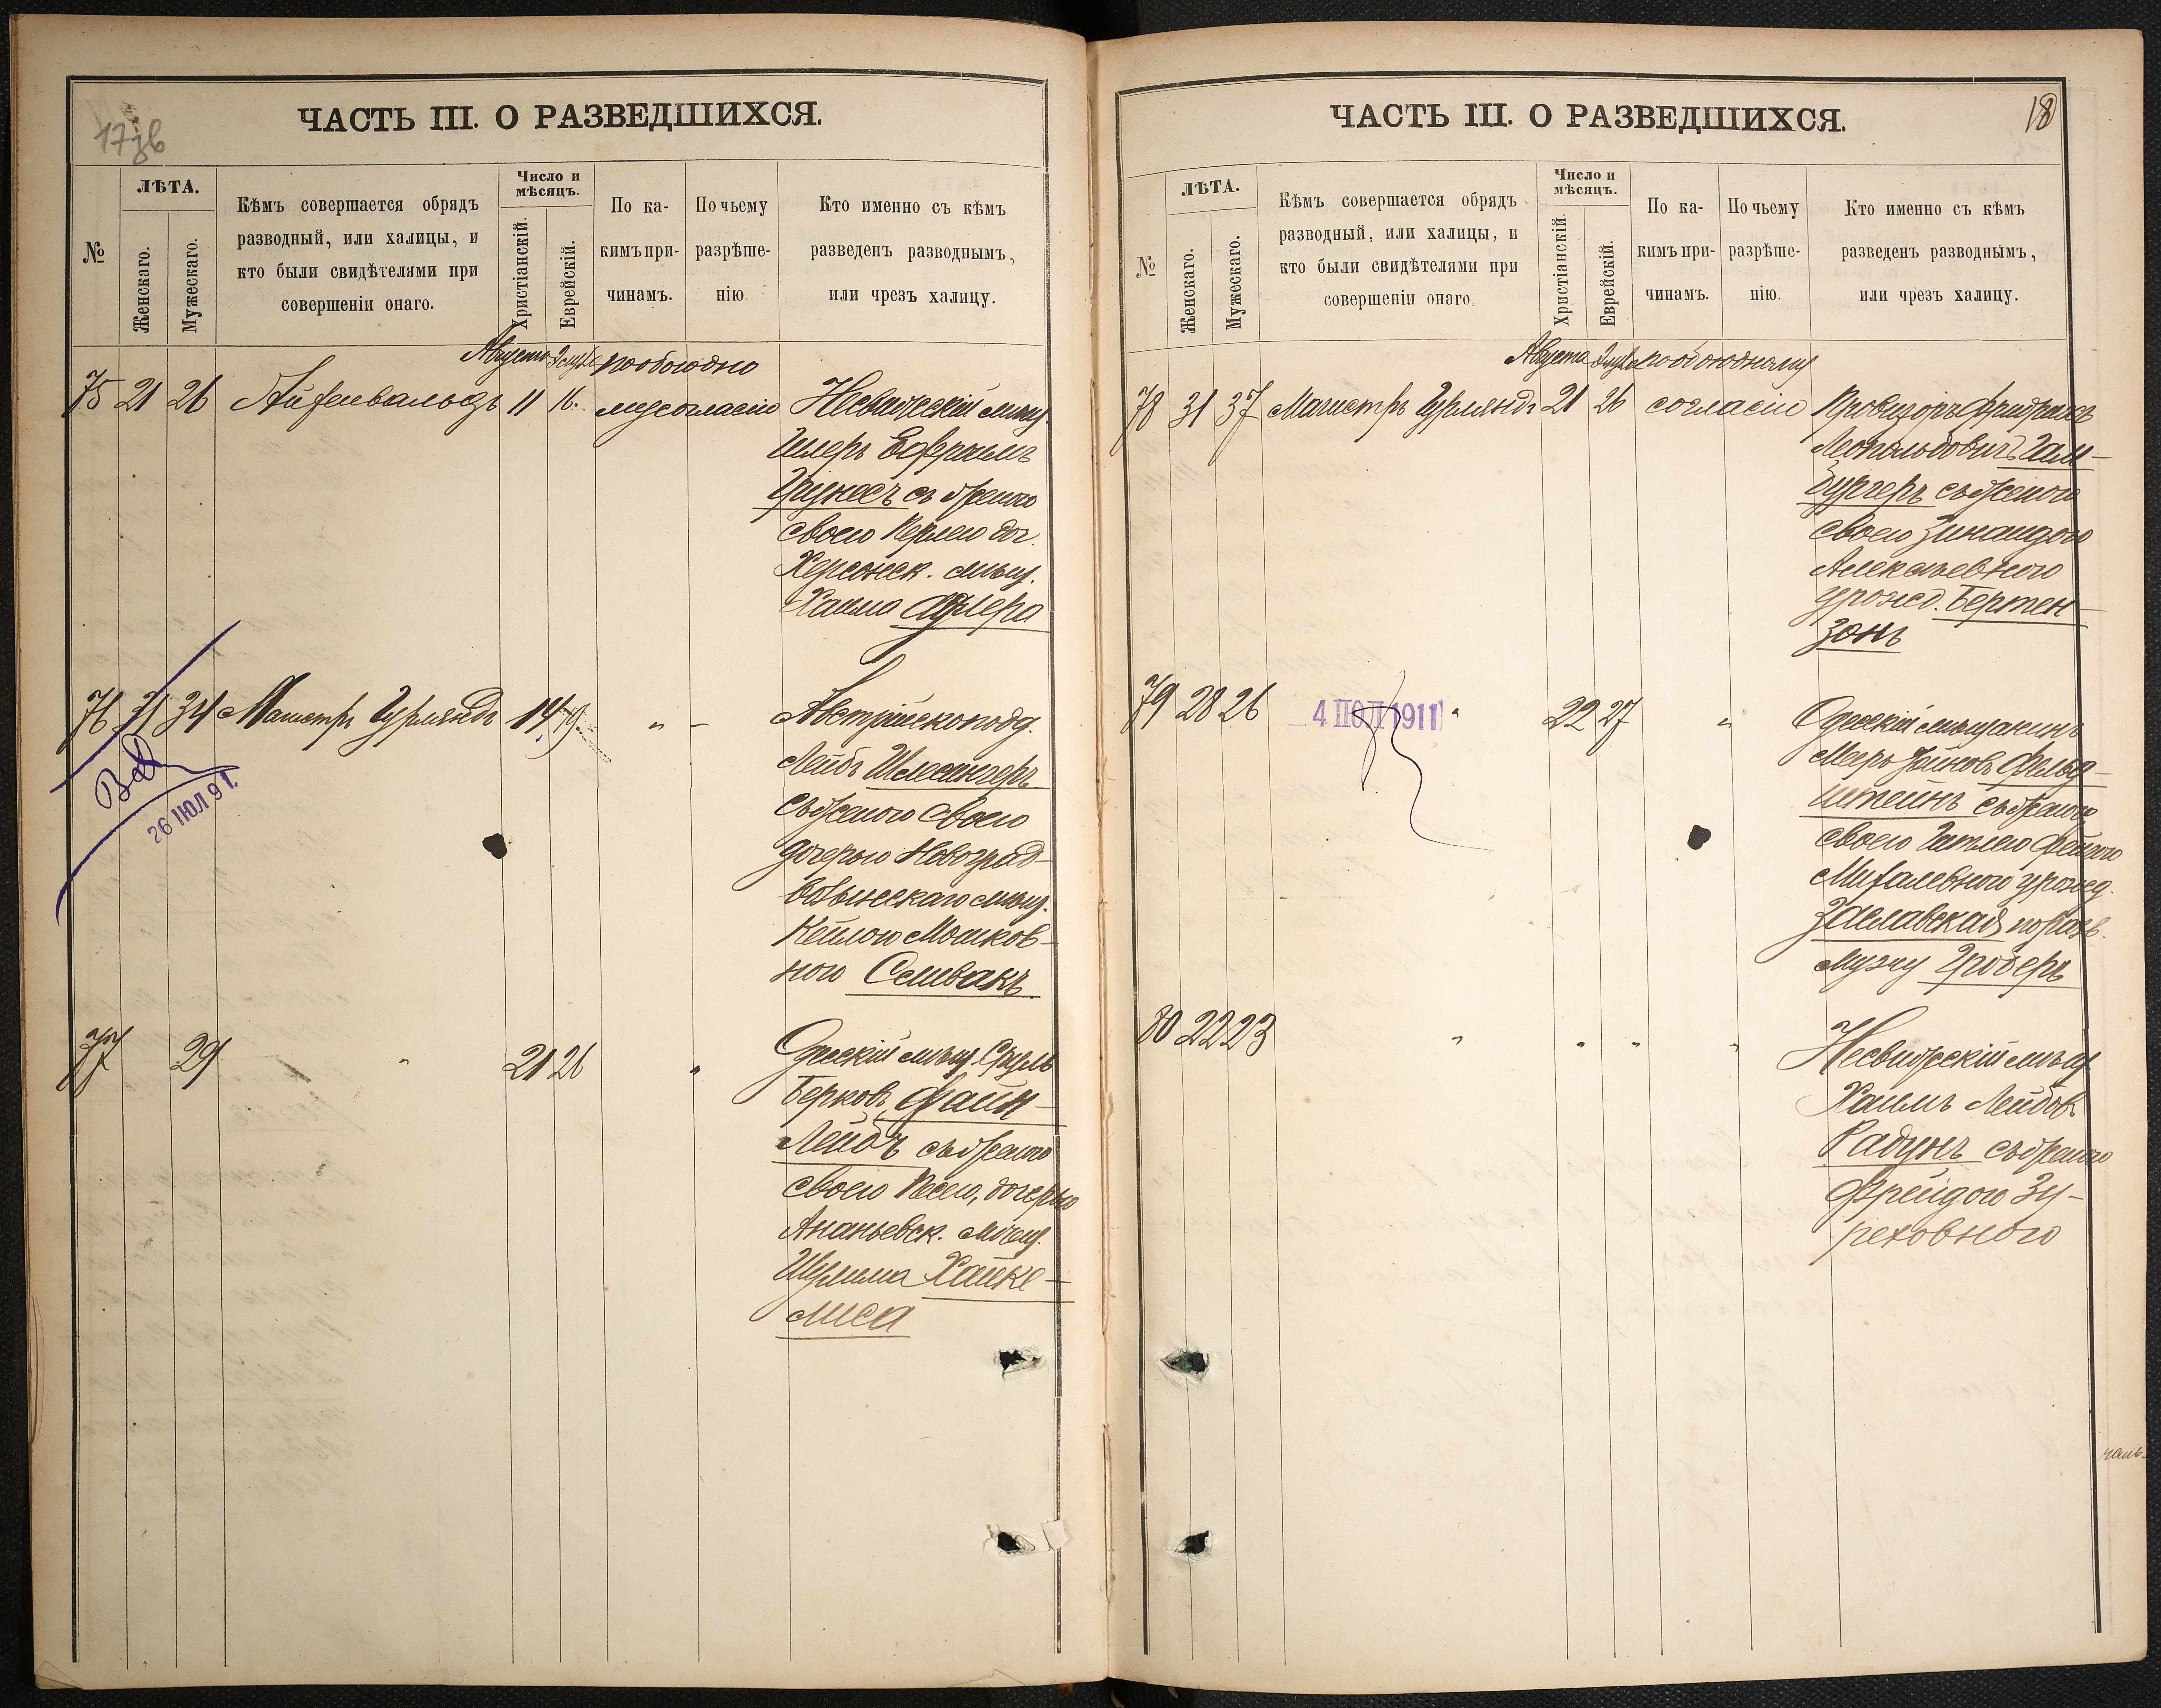 17зв
ЧАСТЬ III. О РАЗВЕДШИХСЯ.
№
ЛѢТА.
Женскаго.
Мужескаго.
Кѣмъ совершается обрядъ
разводный, или халицы, и
кто были свидѣтелями при
совершеніи онаго.
Число и
мѣсяцъ.
Христіанскій.
Еврейскій.
По ка-
кимъ при-
чинамъ.
По чьему
разрѣше-
нію.
Кто именно съ кѣмъ
разведенъ разводнымъ,
или чрезъ халицу.
Августа пообоюдно
75 21 26 Айзенвальдъ 11 16. му согласію Несвижскій мѣщ.
Шлеръ Ефраимъ
съ женою
своею Перлею доч.
Херсонск. мѣщ.
Хаима Адлера
76 31 34 Магистръ Гурляндъ 14 19. " - Австрійско под.
Лейбъ Шлезингеръ
съ женою своею
дочерью Новоград-
волынскаго мѣщ.
Кейлою Мошков-
ною Селивакъ
26 ІЮЛ 91.
77 29 " 21 26 " Одесскій мѣщ. Сруль
Берковъ Файн-
Лейбъ съ женою
своею Песею, дочерью
Ананьевск. мѣщ.
Шулима Хайке-
лиса
18
ЧАСТЬ III. О РАЗВЕДШИХСЯ.
№
ЛѢТА.
Женскаго.
Мужескаго.
Кѣмъ совершается обрядъ
разводный, или халицы, и
кто были свидѣтелями при
совершеніи онаго.
Число и
мѣсяцъ.
Христіанскій.
Еврейскій.
По ка-
кимъ при-
чинамъ.
По чьему
разрѣше-
нію.
Кто именно съ кѣмъ
разведенъ разводнымъ,
или чрезъ халицу.
Августа пообоюдному
78 31 37 Магистръ Гурляндъ 21 26 согласію Провизоръ Фридрихъ
Леопольдовичъ Гам-
бургеръ съ женою
своею Зинаидою
Алексѣевною
урожд. Бертен-
зонъ
79 28 26 4 ІЮЛ 1911 " 22 27 " Одесскій мѣщанинъ
Мееръ Хаимовъ Фельд-
штейнъ съ женою
своею Гитлею Фейгою
Михалевною урожд.
Заславская по разв.
мужу Гроберъ
80 22 23 " " " " Несвижскій мѣщ.
Хаимъ Лейбовъ
Радунъ съ женою
Фрейдою Зу-
реховною